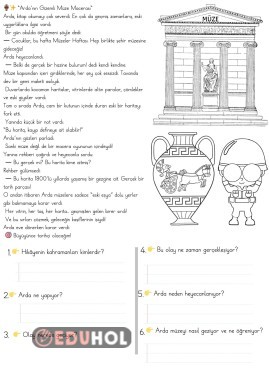 "Arda'nın Gizemli Müze Macerası"
Arda, kitap okumayı çok severdi. En çok da geçmiş zamanları, eski
uygarlıkları ilgisi vardı.
Bir gün okulda öğretmeni şöyle dedi:
— Çocuklar, bu hafta Müzeler Haftası. Hep birlikte şehir müzesine
gideceğiz!
Arda heyecanlandı.
— Belki de gerçek bir hazine bulurum! dedi kendi kendine.
Müze kapısından içeri girdiklerinde, her şey çok sessizdi. Tavanda
dev bir gemi maketi asılıydı.
Duvarlarda kocaman haritalar, vitrinlerde altın paralar, sandıklar
ve eski giysiler vardı.
Tam o sırada Arda, cam bir kutunun içinde duran eski bir haritayı
fark etti.
Yanında küçük bir not vardı:
"Bu harita, kayıp defineye ait olabilir!"
Arda'nın gözleri parladı.
Sanki müze değil de bir macera oyununun içindeydi!
Yanına rehberi çağırdı ve heyecanla sordu:
— Bu gerçek mi? Bu harita kime aitmiş?
Rehber gülümsedi:
— Bu harita 1800'lü yıllarda yaşamış bir gezgine ait. Gerçek bir
tarih parçası!
O andan itibaren Arda müzelere sadece "eski eşya" dolu yerler
gibi bakmamaya karar verdi.
Her vitrin, her taş, her harita... geçmişten gelen birer sırdı!
Ve bu sırları çözmek, geleceğin kaşiflerinin işiydi!
Arda eve dönerken karar verdi:
Büyüyünce tarihçi olacağım!
MÜZE
1. Hikâyenin kahramanları kimlerdir?
2. Arda ne yapıyor?
3. Olay
4. Bu olay ne zaman gerçekleşiyor?
5. Arda neden heyecanlanıyor?
6. Arda müzeyi nasıl geziyor ve ne öğreniyor?
EDUHOL